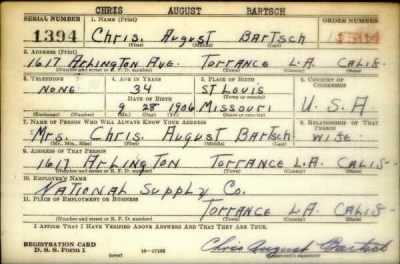 CHRIS AUGUST BARTSCH
SERIAL NUMBER 1. NAME (Print) ORDER NUMBER
1394 Chris. August Bartsch
(First) (Middle) (Last)
2. ADDRESS (Print)
1617 Arlington Ave. Torrance L.A. Calis.
(Number and street or R. F. D. number) (Town) (County) (State)
3. TELEPHONE 4. AGE IN YEARS 5. PLACE OF BIRTH 6. COUNTRY OF CITIZENSHIP
None 34 St Louis
DATE OF BIRTH (Town or county)
9 28 1906 Missouri U.S.A
(Exchange) (Number) (Mo.) (Day) (Yr.) (State or country)
7. NAME OF PERSON WHO WILL ALWAYS KNOW YOUR ADDRESS 8. RELATIONSHIP OF THAT PERSON
Mrs. Chris. August Bartsch Wife
(Mr., Mrs., Miss) (First) (Middle) (Last)
9. ADDRESS OF THAT PERSON
1617 Arlington Torrance L.A. Calis
(Number and street or R. F. D. number) (Town) (County) (State)
10. EMPLOYER'S NAME
National Supply Co.
11. PLACE OF EMPLOYMENT OR BUSINESS
Torrance L.A. Calis
(Number and street or R. F. D. number) (Town) (County) (State)
I AFFIRM THAT I HAVE VERIFIED ABOVE ANSWERS AND THAT THEY ARE TRUE.
REGISTRATION CARD
D. S. S. Form 1 16-17105 Chris August Bartsch
(Registrant's signature)